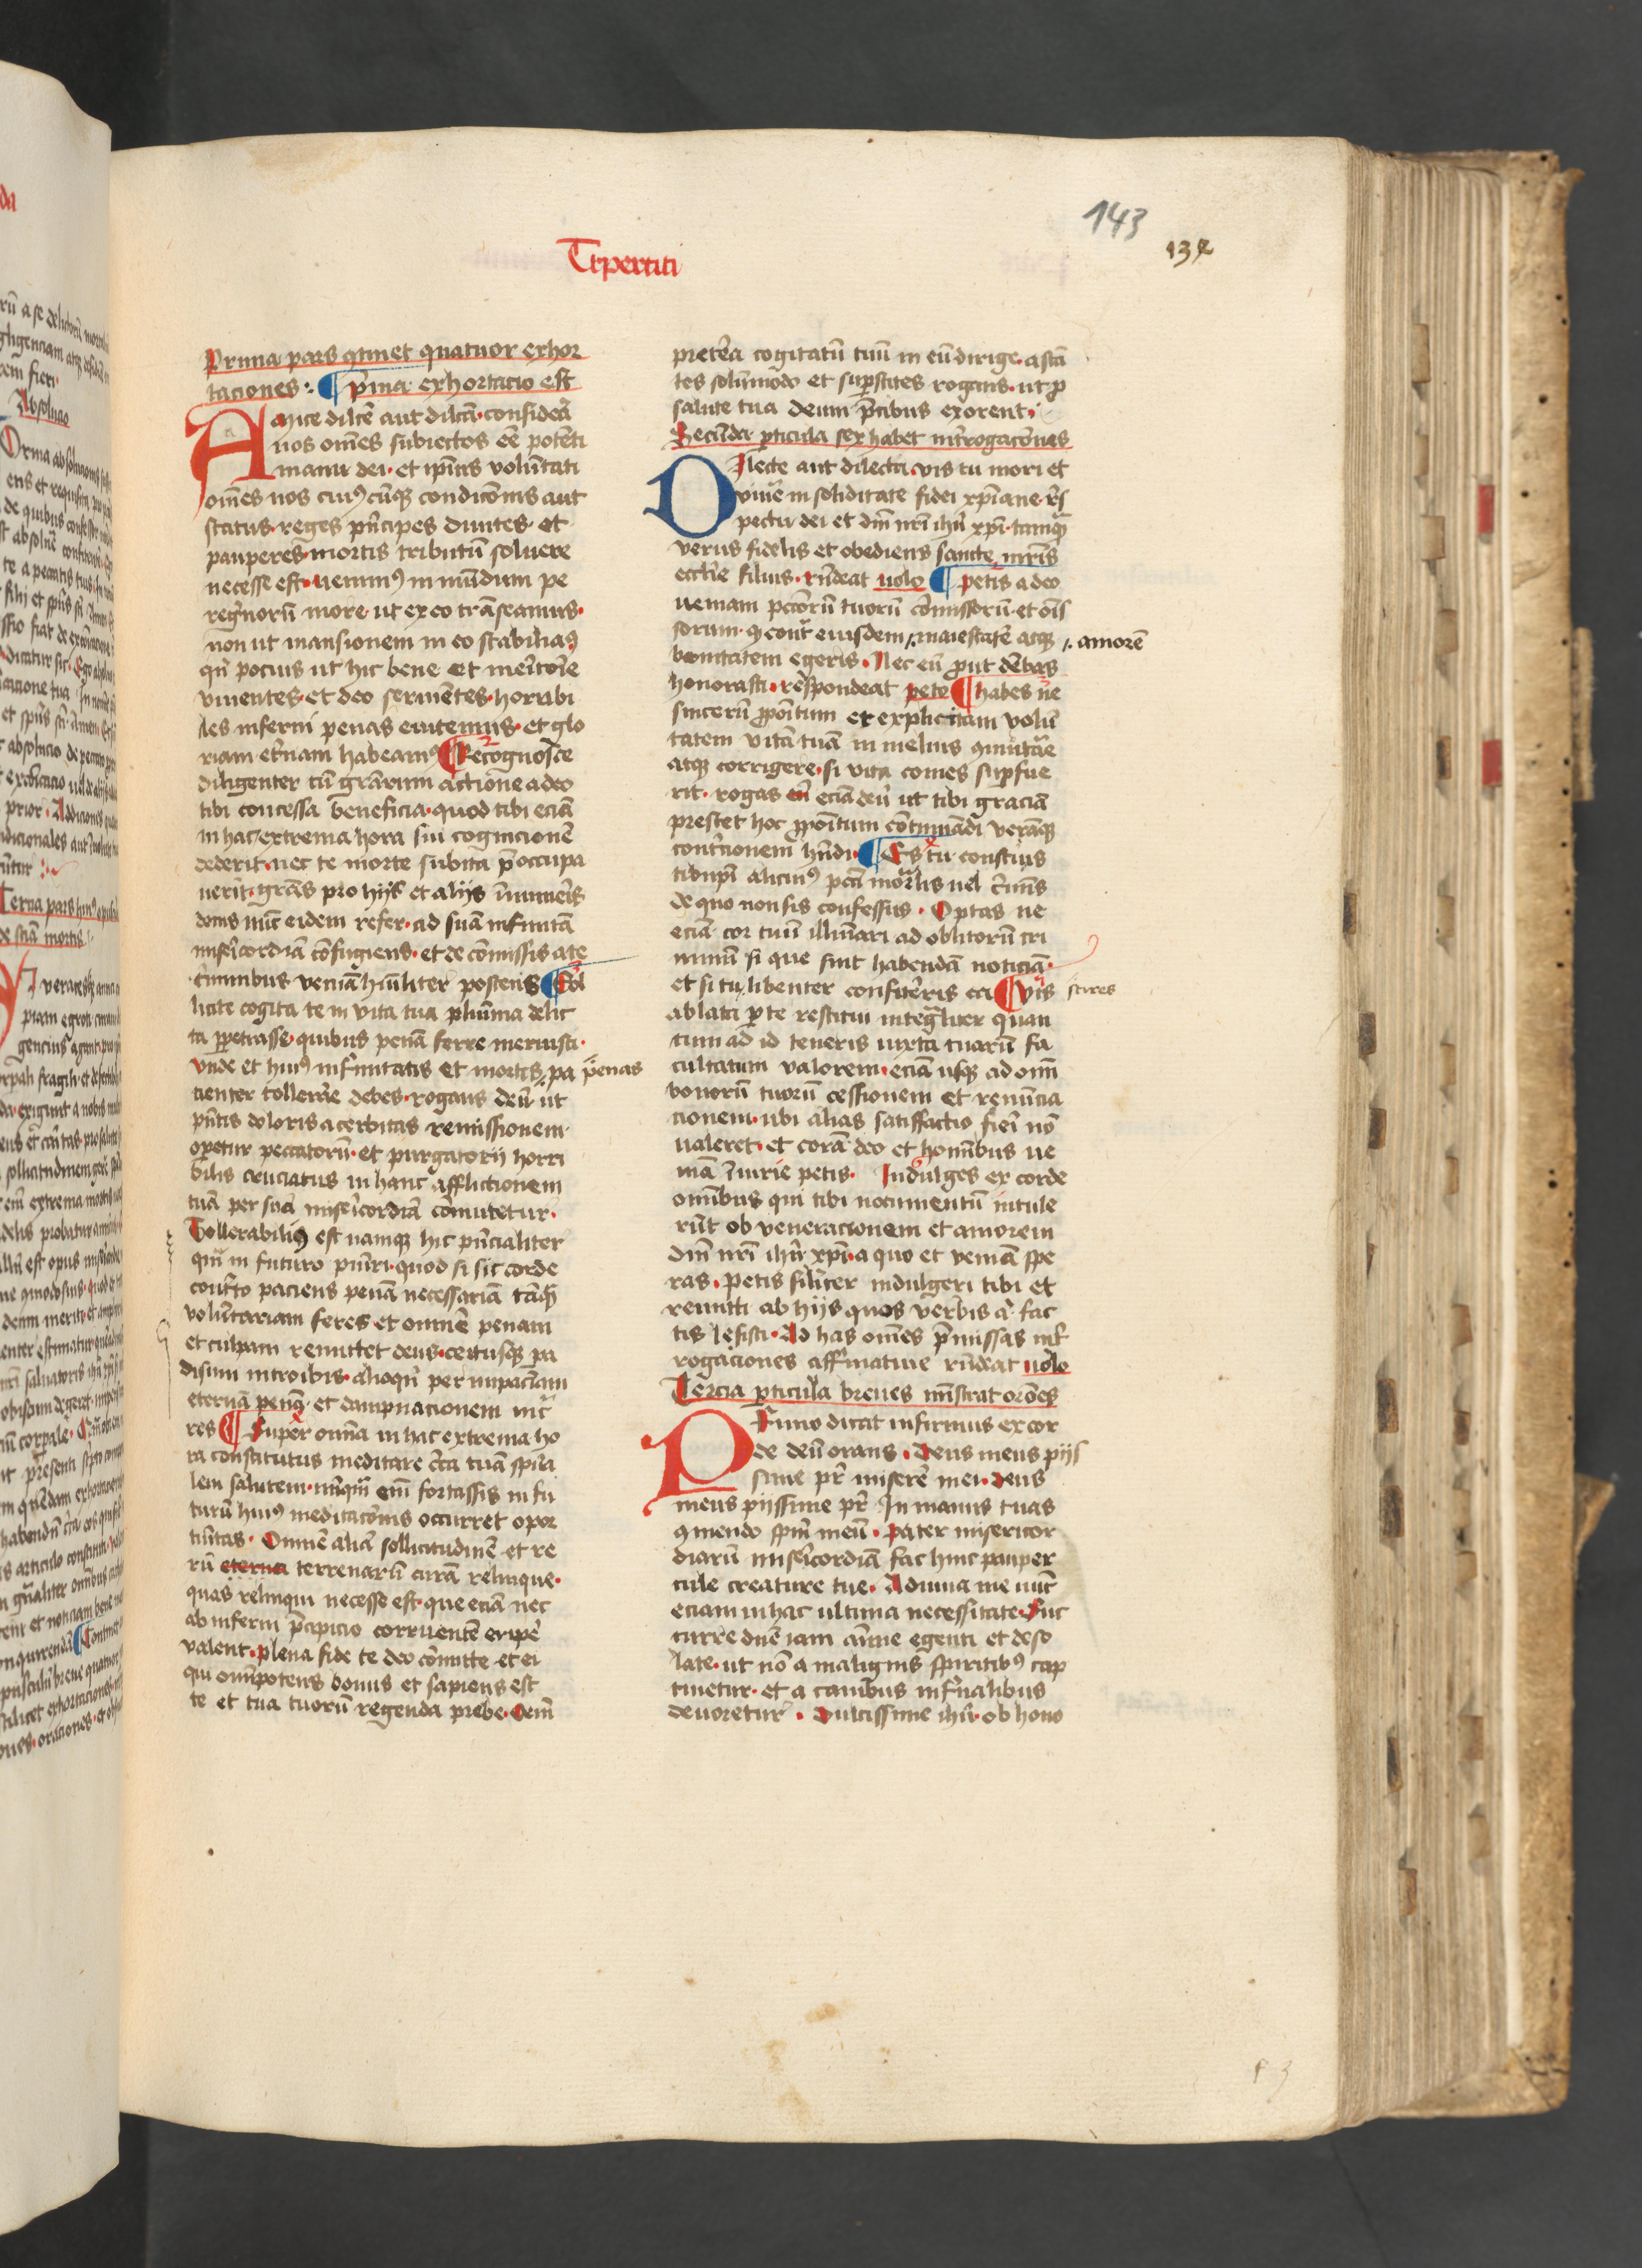 143
132
Tripertiti
Prima pars 9tinet quatuor exhor
taciones : ¶ p̄ma exhortacio est
Amice dilc̄e aut dilc̄a · considera
nos om̄es subiectos eē potēti
manu dei · et ip̄ius volūtati
om̄es nos cuiꝰcūqꝫ condic̄onis aut
status · reges pn̄cipes diuites · et
pauperes · mortis tributū soluere
necesse est · uenimꝰ in mūdum pe
regrinorū more · ut ex eo trāseamus ·
non ut mansionem in eo stabiliaꝰ
qn̄ pocius ut hic bene et meritorie
viuentes · et deo seruientes · horribi
les inferni penas euitemus · et glo
riam et̄nam habeamꝰ ¶ Recognosce
diligenter cū gr̄arum actione a deo
tibi concessa beneficia · quod tibi eciā
in hac extrema hora sui cognicionē
dederit · nec te morte subita p̄occupa
uerit · gr̄as pro hijs et alijs īnumeris
donis nūc eidem refer · ad suā infinitā
misericordiā cōfugiens · et de cōmissis a te
criminibus veniā hūiliter poscens ¶ Sol
licite cogita te in vita tua plurima delic
ta ꝑpetrasse · quibus penā ferre meruisti ·
vnde et huiꝰ infirmitatis et mortis pa penas
cienter tollerare debes · rogans deū · ut
pn̄tis doloris acerbitas remissionem
operetur peccatorū · et purgatorij horri
bilis cruciatus in hanc afflictionem
tuā per suā misericordiā cōmutetur ·
Tollerabiliꝰ est namqꝫ hic pn̄cialiter
qm̄ in futuro puniri · quod si sic corde
contrito paciens penā necessariā tāqm̄
volūtariam feres · et omnē penam
et culpam remittet deus · certusqꝫ pa
disum introibis · alioqn̄ per impaciam
eternā penā · et dampnacionem incur
res ¶ Super omnia in hac extrema ho
ra constitutus meditare circa tuā spirita
lem salutem · nūqm̄ em̄ fortassis in fu
turū huiꝰ meditac̄onis occurret opor
tunitas · Omnē aliā sollicitudinē et re
rū eterna terrenarū curā relinque ·
quas relinqui necesse est · que eciā nec
ab inferni p̄cipicio corruentē eripere
valent · plena fide te deo cōmitte et ei
qui omīpotens bonus et sapiens est
te et tua tuorū regenda prebe · Oem̄
preterea cogitatū tuū in eū dirige · astā
tes solūmodo et suꝑstites rogans · ut ꝓ
salute tua deum p̄cibus exorent ·
Secunda ꝑticula sex habet int̄rogac̄ones
Dilecte aut dilecta vis tu mori et
viuere in soliditate fidei xp̄iane · res
pectu dei et dn̄i nr̄i ihū xp̄i · tamqm̄
verus fidelis et obediens sancte mr̄is
ecclesie filius · rn̄deat uolo ¶ Petis a deo
veniam pctōrū tuorū cōmissorū · et omis
sorum · q contra eiusdem maiestatē atqꝫ amorē
bonitatem egeris · Nec eū prout debebas
honorasti · respondeat pete ¶ habes ne
sincerū ꝓpositum et explicitam volun
tatem vitā tuā in melius 9mutare
atqꝫ corrigere · si vita comes suꝑfue
rit · rogas eciā deū ut tibi graciā
prestet hoc ꝓpositum cōtinuādi veramqꝫ
contricionem hn̄di · ¶ Es tu conscius
tibiipi alicuiꝰ pctī mortalis uel criminis
de quo non sis confessus · Optas ne
eciā cor tuū illūinari ad oblitorū cri
minū si que sint habendā noticiā ·
et si tu libenter confitereris ea ¶ Vis scires
ablata per te restitui integraliter quan
tum ad id teneris iuxta tuarū fa
cultatum valorem · eciā usqꝫ ad omniū
bonorū tuorū cessionem et renuncia
cionem · ubi alias satisfactio fieri nō
valeret · et corā deo et hominibus ve
niā iniurie petis · Indulges ex corde
omnibus qui tibi nocumentū intule
rūt ob veneracionem et amorem
dn̄i nr̄i ihū xp̄i · a quo et veniā spe
ras · Petis similiter indulgeri tibi et
remitti ab hijs quos verbis aut fac
tis lesisti · Ad has om̄es p̄missas int̄
rogaciones affirmatiue rn̄deat uolo
Tercia ꝑticula breues ministrat orōes
Primo dicat infirmus ex cor
de deū orans · Deus meus pijs
sime pr̄ miserere mei · deus
meus pijssime pr̄ In manus tuas
9mendo spm̄ meū · Pater misericor
diarū misericordiā fac huic pauper
cule creature tue · Adiuua me nūc
eciam in hac ultima necessitate · Suc
curre dn̄e iam anime egenti et deso
late · ut nō a malignis spiritibꝰ cap
tiuetur · et a canibus infernalibus
deuoretur · Dulcissime ihū · ob hono